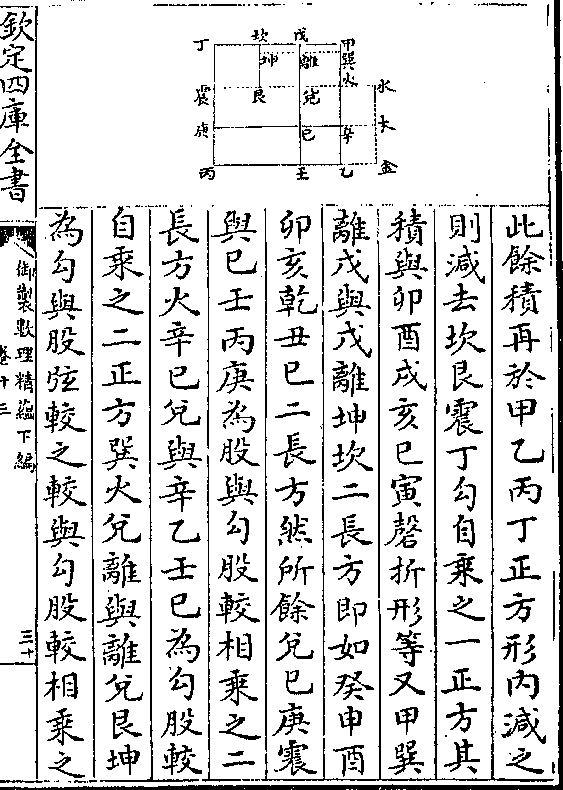 丁 坎 戊 甲
坤 離 巽
火 水
震 艮 兌
庚 巳 辛 木
丙 壬 乙 金
此餘積再於甲乙丙丁正方形内減之
則減去坎艮震丁勾自乘之一正方其
積與卯酉戌亥巳寅磬折形等又甲巽
離戊與戊離坤坎二長方即如癸申酉
卯亥乾丑巳二長方然所餘兌巳庚震
與巳壬丙庚為股與勾股較相乘之二
長方火辛巳兌與辛乙壬巳為勾股較
自乘之二正方巽火兌離與離兌艮坤
為勾與股弦較之較與勾股較相乘之
欽定四庫全書
御製數理精蘊下編
卷十三
三十